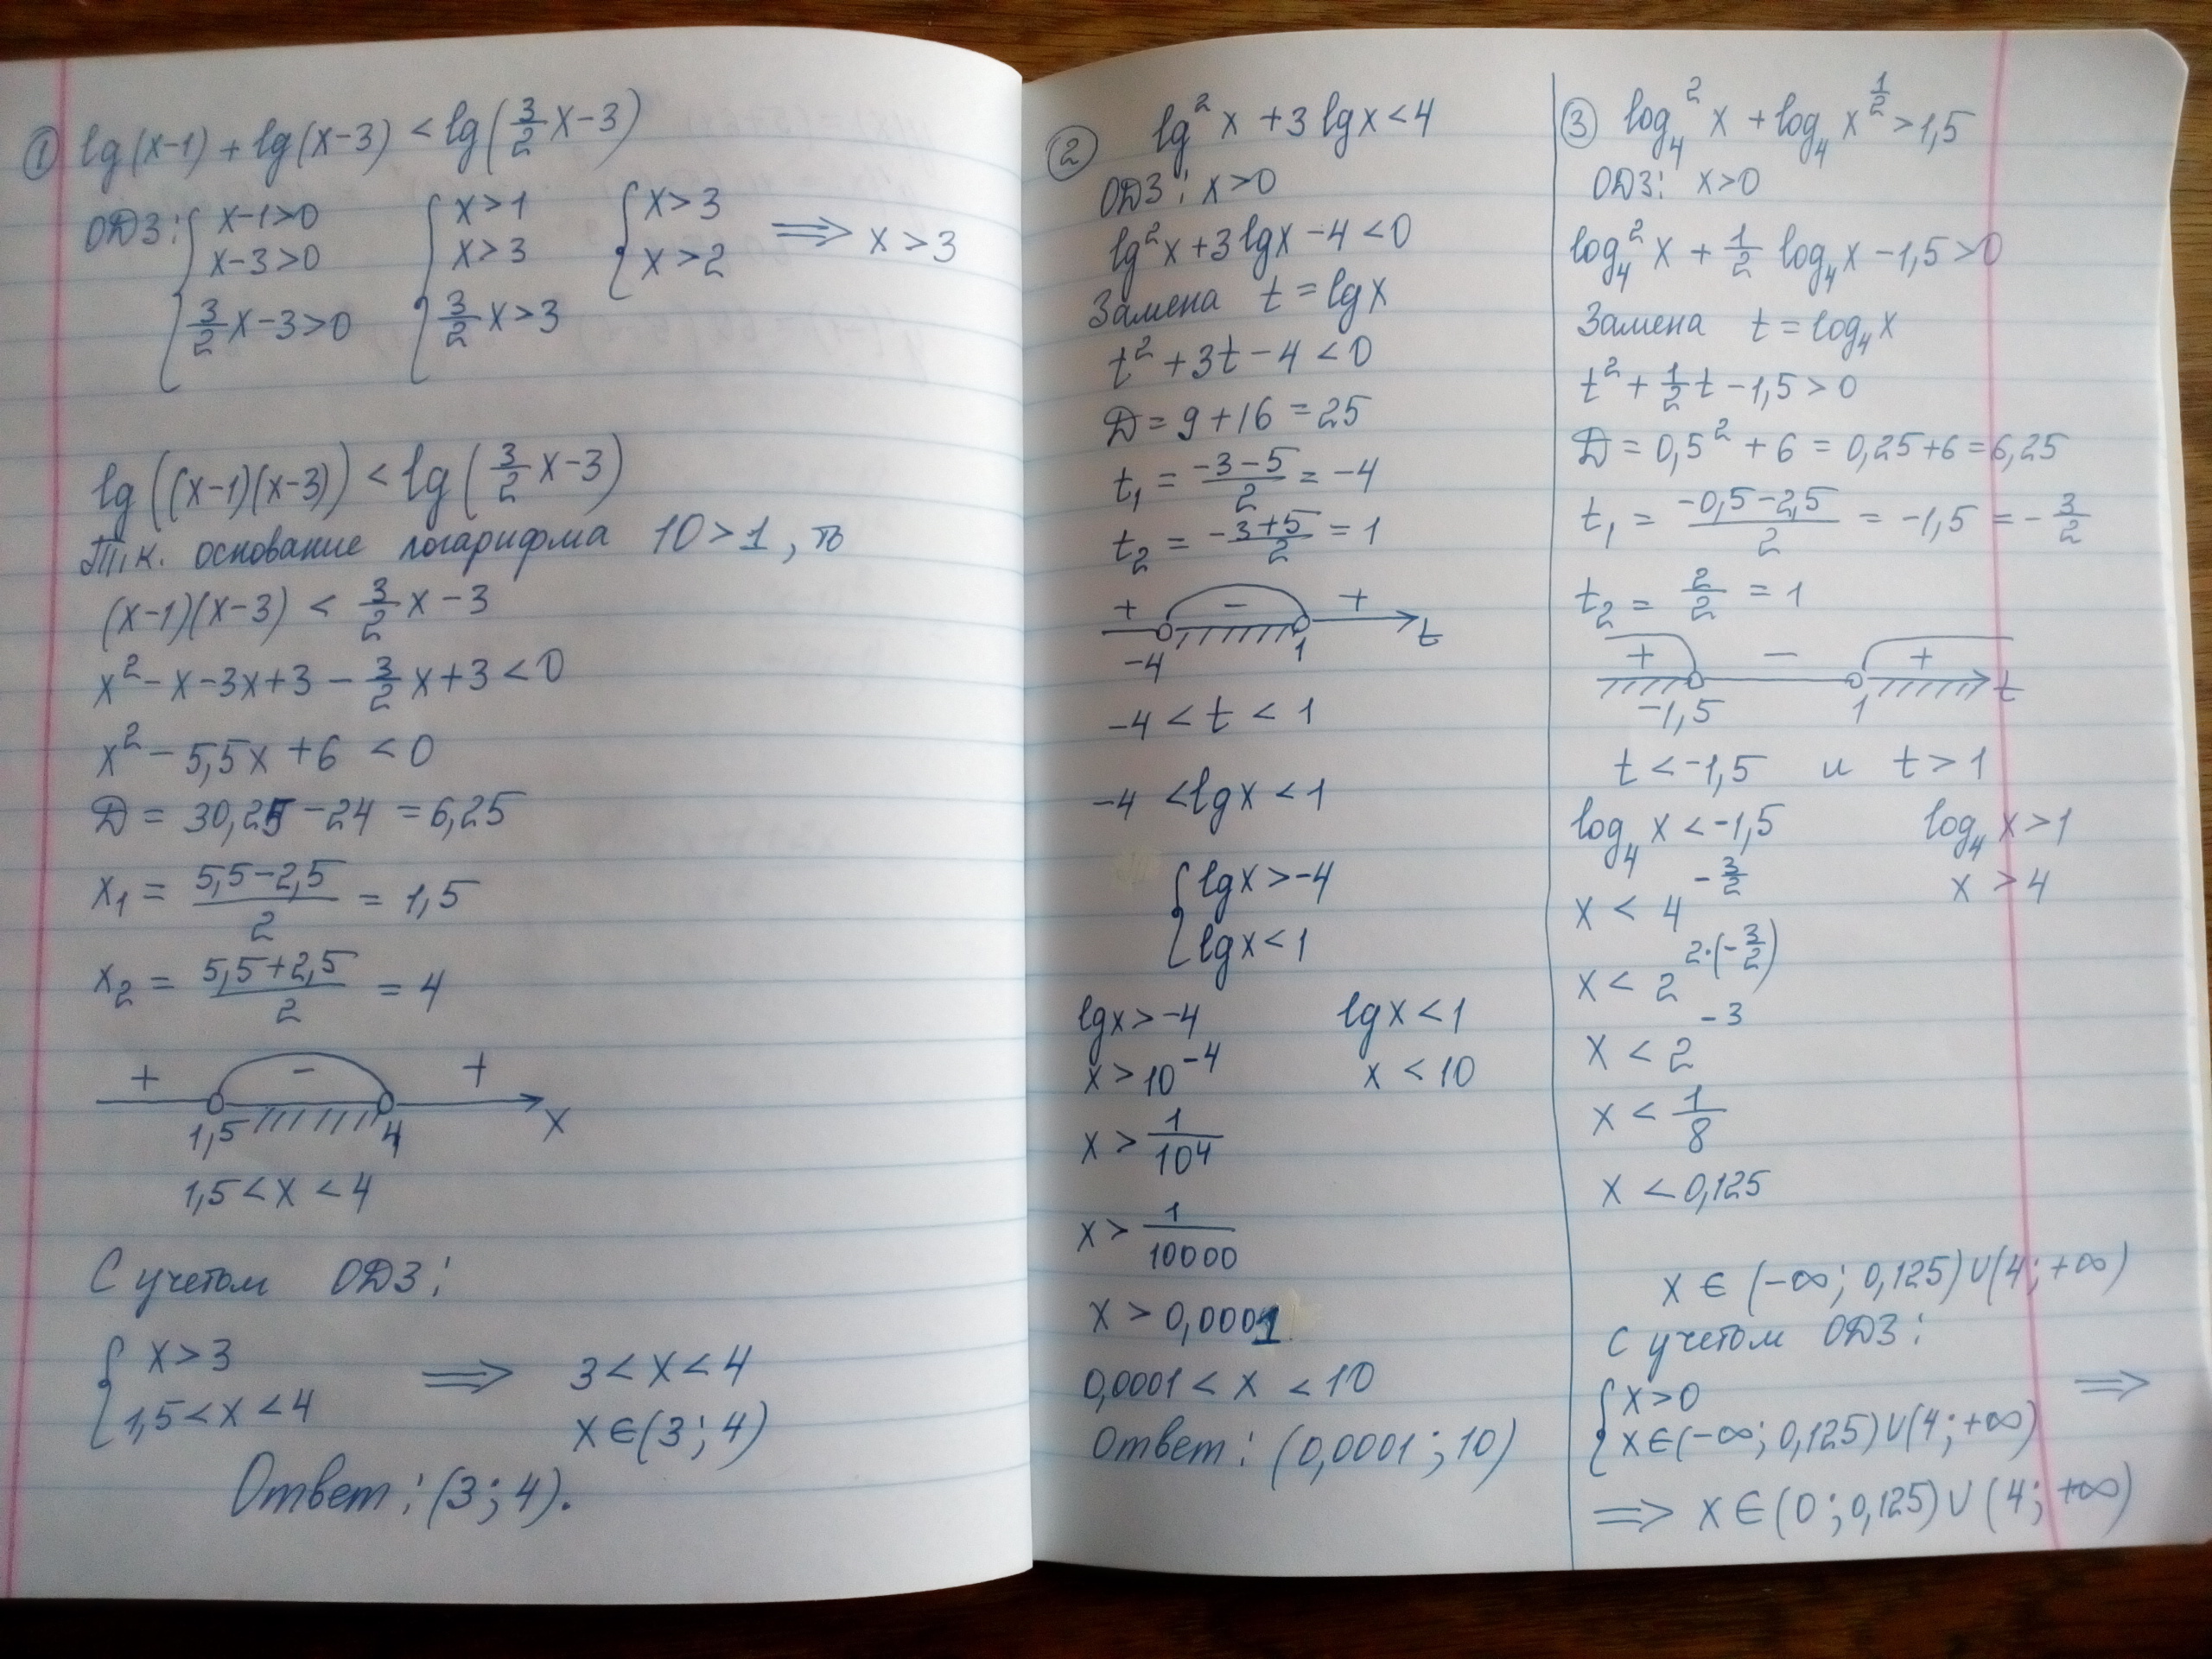 ① lg(x-1) + lg(x-3) < lg(3/2 x-3)
ОДЗ: { x-1>0 { x>1 { x>3 ⟹ x>3
x-3>0 x>3 x>2
3/2 x-3>0 3/2 x>3
lg((x-1)(x-3)) < lg(3/2 x-3)
Т.к. основание логарифма 10>1, то
(x-1)(x-3) < 3/2 x-3
x²-x-3x+3-3/2 x+3<0
x²-5,5x+6 <0
D = 30,25-24 = 6,25
x₁ = (5,5-2,5)/2 = 1,5
x₂ = (5,5+2,5)/2 = 4
+ - +
1,5 4 x
1,5<x<4
С учетом ОДЗ:
{ x>3 ⟹ 3<x<4
1,5<x<4 x∈(3;4)
Ответ: (3;4).
② lg²x +3 lgx<4
ОДЗ: x>0
lg²x+3lgx-4<0
Замена t=lgx
t²+3t-4<0
D=9+16=25
t₁ = (-3-5)/2 = -4
t₂ = (-3+5)/2 = 1
+ - +
-4 1 t
-4<t<1
-4 <lgx<1
{ lgx>-4
lgx<1
lgx>-4 lgx<1
x>10⁻⁴ x<10
x> 1/10⁴
x> 1/10000
x > 0,0001
0,0001<x<10
Ответ: (0,0001;10)
③ log₄²x + log₄x^(1/2) >1,5
ОДЗ: x>0
log₄²x + 1/2 log₄x-1,5>0
Замена t=log₄x
t²+1/2 t-1,5>0
D=0,5²+6=0,25+6=6,25
t₁ = (-0,5-2,5)/2 = -1,5 = -3/2
t₂ = 2/2 = 1
+ - +
-1,5 1 t
t<-1,5 и t>1
log₄x<-1,5 log₄x>1
x<4^(-3/2) x>4
x<2^(2·(-3/2))
x<2⁻³
x< 1/8
x<0,125
x∈(-∞;0,125)∪(4;+∞)
С учетом ОДЗ:
{ x>0 ⟹
x∈(-∞;0,125)∪(4;+∞)
⟹ x∈(0;0,125)∪(4;+∞)